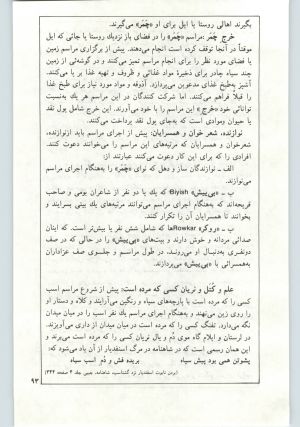 بگیرند اهالی روستا یا ایل برای او «چَمَر» می‌گیرند.
خرج چَمَر: مراسم «چَمَر» را در فضای باز نزدیك روستا یا جائی که ایل
موقتاً در آنجا توقف کرده است انجام می‌دهند. پیش از برگزاری مراسم زمین
یا فضای مورد نظر را برای انجام مراسم تمیز می‌کنند و در گوشه‌ای از زمین
چند سیاه چادر برای ذخیرهٔ مواد غذائی و ظروف و تهیه غذا بر پا می‌کنند.
آشپز به‌طبخ غذای مدعوین می‌پردازد. آذوقه و مواد مورد نیاز برای طبخ غذا
را قبلاً فراهم می‌کنند. اما شرکت کنندگان در این مراسم هر یك به‌نسبت
توانائی خود «خَرج» این مراسم را با خود می‌آورند. این خرج شامل پول نقد
یا حیوان وموادی است که به‌جای پول نقد پرداخت می‌کنند.
نوازنده، شعر خوان و همسرایان: پیش از اجرای مراسم باید ازنوازنده،
شعرخوان و همسرایان که مرثیه‌های این مراسم را می‌خوانند دعوت کنند.
افرادی را که برای این کار دعوت می‌کنند عبارتند از:
الف ـ نوازندگان ساز و دهل که نوای «چَمَر» را به‌هنگام اجرای مراسم
می‌نوازند.
ب ـ «بی‌ییش» Biyish که یك یا دو نفر از شاعران بومی و صاحب
قریحه‌اند که به‌هنگام اجرای مراسم می‌توانند مرثیه‌های یك بیتی بسرایند و
بخوانند تا همسرایان آن را تکرار کنند.
پ ـ «روکَر» Rowkarها که شامل شش نفر یا بیش‌تر است. که اینان
صدائی مردانه و خوش دارند و بیت‌های «بی‌ییش» را در حالی که در صف
دونفری به‌دنبال او می‌روند، در طول مراسم و جلسوی صف عزاداران
به‌همسرائی با «بی‌ییش» می‌پردازند.
علم و کُتَل و نریان کسی که مرده است: پیش از شروع مراسم اسب
کسی را که مرده است با پارچه‌های سیاه و رنگین می‌آرایند و کلاه و دستار او
را روی زین می‌نهند و به‌هنگام اجرای مراسم یك نفر اسب را در میان میدان
نگه می‌دارد. تفنگ کسی را که مرده است در میان میدان از داری می‌آویزند.
در لرستان و ایلام گاه موی دُم و یال نریان کسی را که مرده است می‌بُرند و
این همان رسمی است که در شاهنامه در مرگ اسفندیار از آن یاد می‌شود که:
پشوتن همی بود پیش سپاه بریده فش و دُم اسب سیاه
(بردن تابوت اسفندیار نزد گشتاسب، شاهنامه، بمبی جلد ۳ صفحه ۱۳۴۴
۹۳